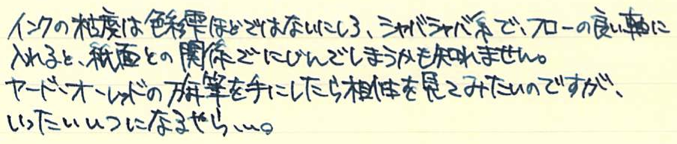 インクの粘度は色彩雫ほどではないにしろ、シャバシャバ系で、フローの良い軸に
入れると、紙面との関係でにじんでしまうかも知れません。
ヤード・オ・レッドの万年筆を手にしたら相性を見てみたいのですが、
いったいいつになるやら…。